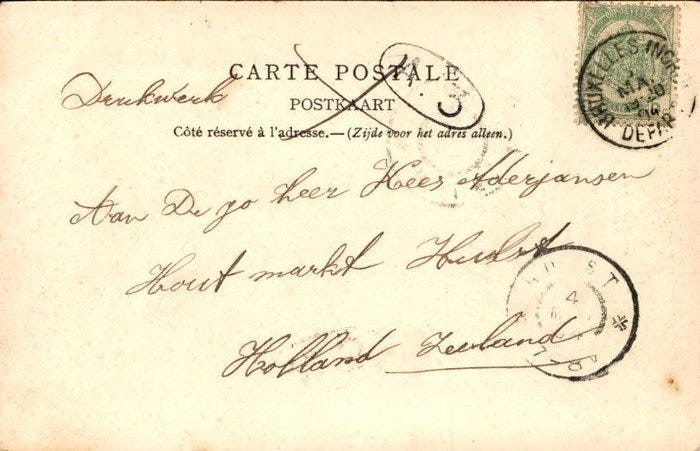 CARTE POSTALE
POSTKAART
Côté réservé à l'adresse.—(Zijde voor het adres alleen.)
Drukwerk
3
BRUXELLES
DEPART
Aan De
heer Kees Aderjansen
Hout markt Hulst
Holland Zeeland
4